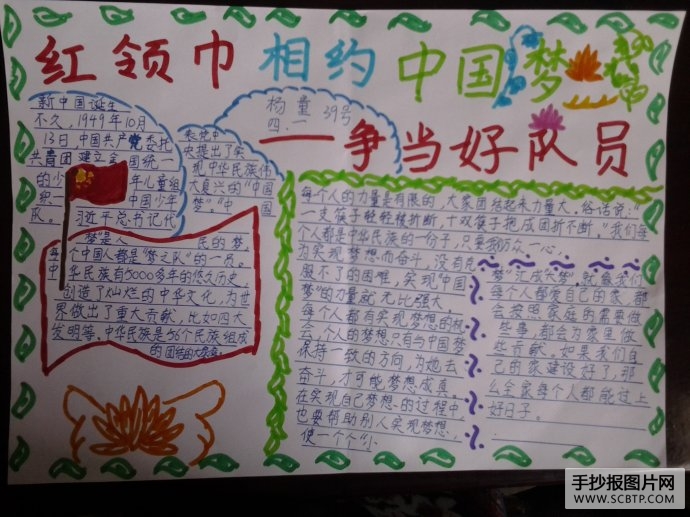 红领巾相约中国梦
——争当好队员
杨童 39号
四.一
新中国诞生
不久,1949年10月
13日,中国共产党委托
共青团建立全国统一
的少年儿童组
织——中国少年
队。习近平总书记代
表党中
央提出了实
现中华民族伟
大复兴的“中国
梦”。“中国
梦”是人民的梦,
每个中国人都是“梦之队”的一员。
中华民族有5000多年的悠久历史,
创造了灿烂的中华文化,为世
界做出了重大贡献,比如四大
发明等。中华民族是56个民族组成
的团结的大家庭。
每个人的力量是有限的,大家团结起来力量大。俗话说:“
一支筷子轻轻被折断,十双筷子抱成团折不断,”我们每
个人都是中华民族的一份子,只要我们众一心,
为实现梦想而奋斗,没有克
服不了的困难,实现“中国
梦”的力量就无比强大。
每个人都有实现梦想的机
会,个人的梦想只有与中国梦
保持一致的方向,为她去
奋斗,才可能梦想成真。
在实现自己梦想的过程中
也要帮助别人实现梦想,
使一个个“小
梦”汇成大梦。就像我们
每个人都爱自己的家,都
会按照家庭的需要做
些事,都会为家里做
些贡献。如果我们自
己的家建设好了,那
么全家每个人都能过上
好日子。
手抄报图片网
WWW.SCBTP.COM